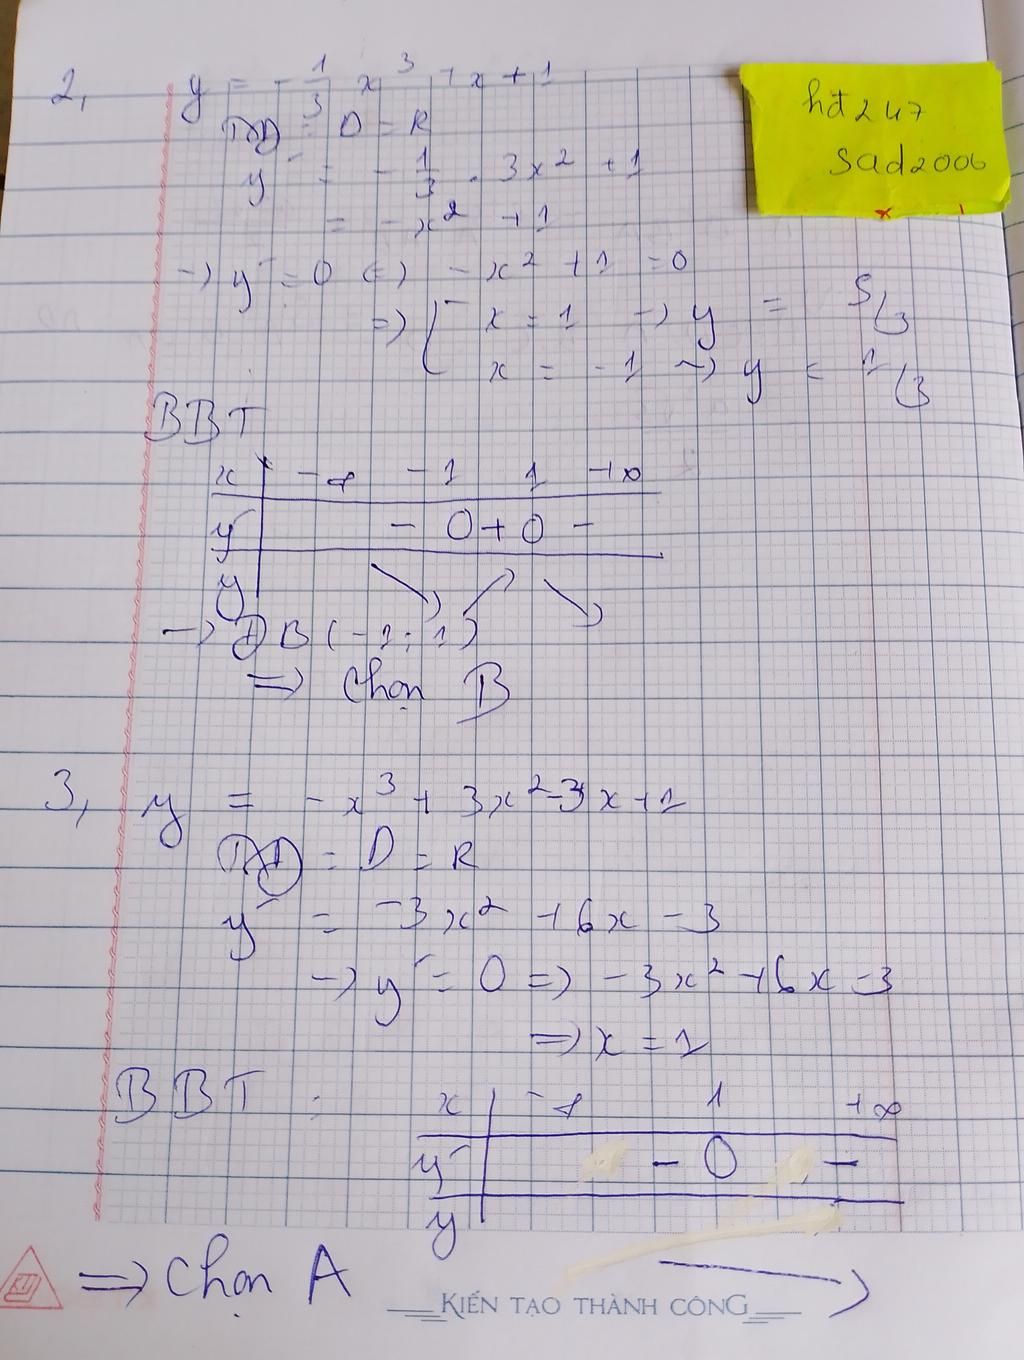 2, y = - 1/3 x^3 + x + 1
TXĐ = D = R
y' = - 1/3 . 3x^2 + 1
= - x^2 + 1
→ y' = 0 ⇔ - x^2 + 1 = 0
⇒ [ x = 1 → y = 5/3
x = -1 → y = 1/3
BBT
x -∞ -1 1 +∞
y' - 0 + 0 -
y
→ ĐB (-1; 1)
⇒ Chọn B
hđ247
sad2006
3, y = - x^3 + 3x^2 - 3x + 1
TXĐ = D = R
y' = -3x^2 + 6x - 3
→ y' = 0 ⇒ -3x^2 + 6x - 3
⇒ x = 1
BBT : x -∞ 1 +∞
y' - 0 -
y
⇒ Chọn A
KIẾN TẠO THÀNH CÔNG